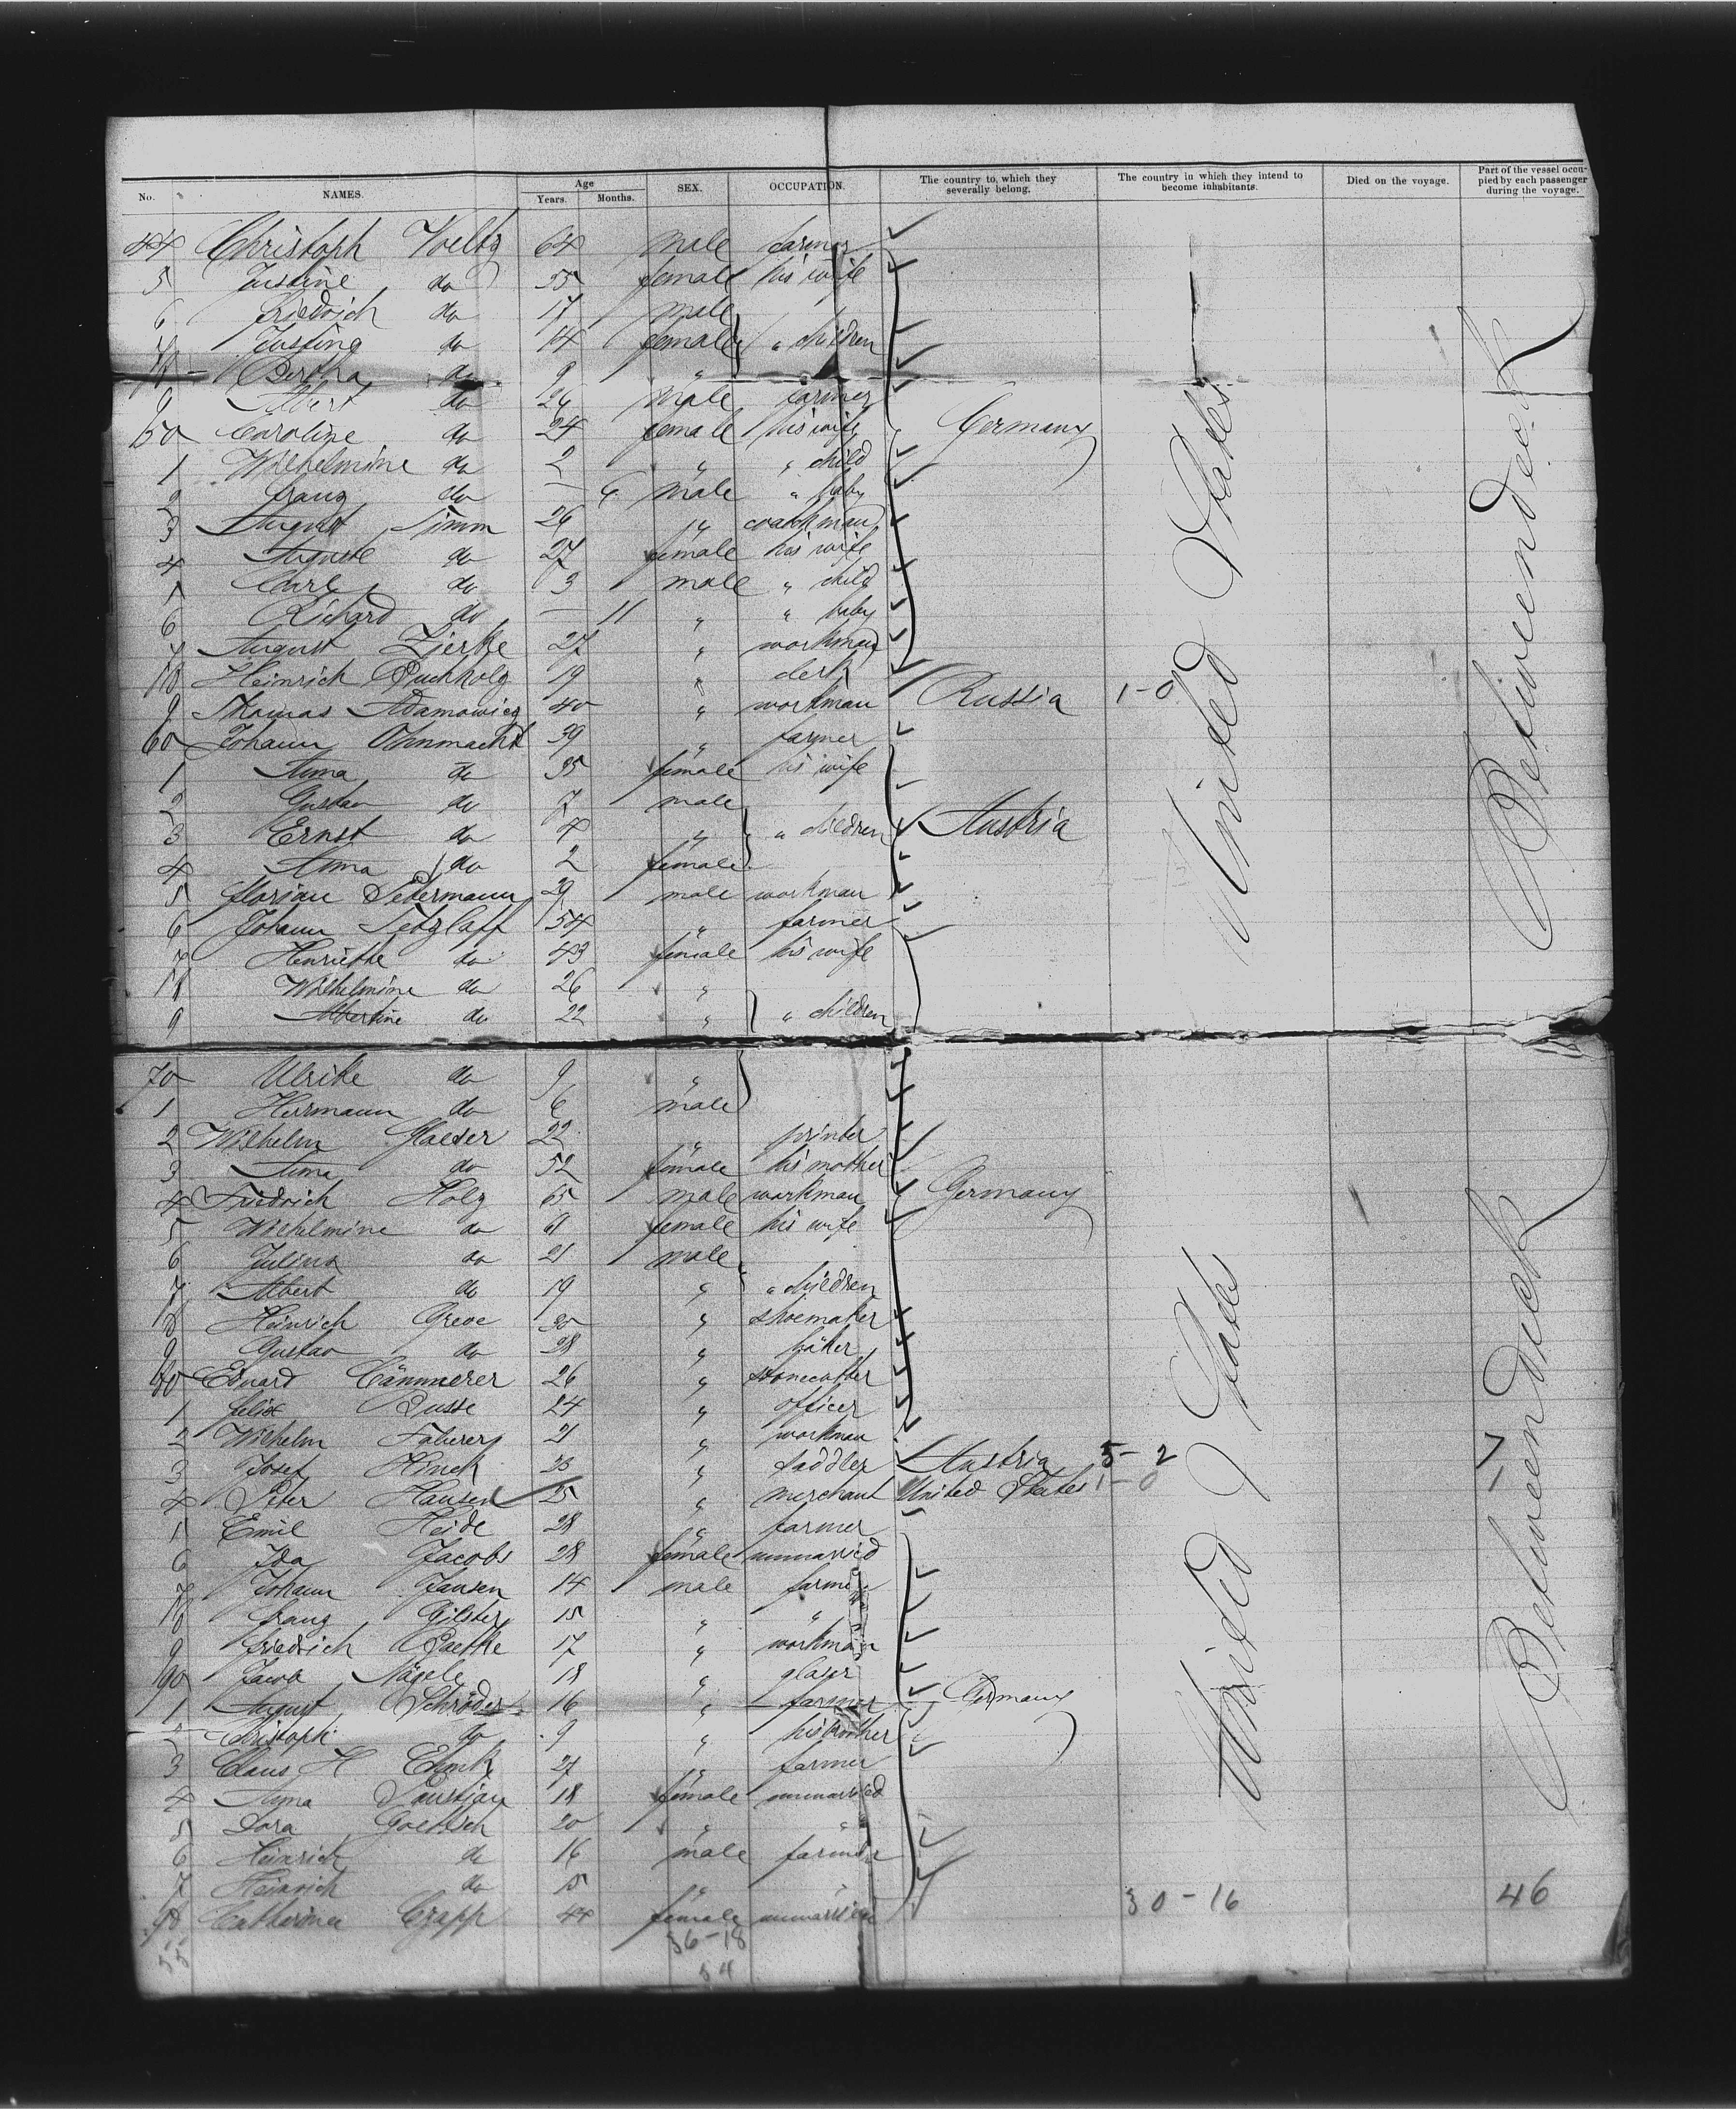 No. NAMES. Age Years. Months. SEX. OCCUPATION. The country to, which they severally belong. The country in which they intend to become inhabitants. Died on the voyage. Part of the vessel occupied by each passenger during the voyage.
44 Christoph Voeltz 64 male farmer
5 Justine do 55 female his wife
6 Friedrich do 17 male
7 Justine do 14 female " children
8 Bertha do 9 "
9 Albert do 26 male farmer
50 Caroline do 24 female his wife Germany
1 Wilhelmine do 2 " " child
2 Franz do — male " baby
3 August Timm 26 " coachman
4 Auguste do 27 female his wife
5 Carl do 3 male " child
6 Richard do — 11 " " baby
7 August Zierke 27 " workman
8 Heinrich Buchholz 19 " clerk
9 Thomas Adamowicz 40 " workman Russia 1-0
60 Johann Ohnmacht 39 " farmer
1 Anna do 35 female his wife
2 Gustav do 7 male
3 Ernst do 4 " " children Austria
4 Anna do 2 female
5 Florian Pedermann 29 male workman
6 Johann Tetzlaff 54 " farmer
7 Henriette do 43 female his wife
8 Wilhelmine do 26 "
9 Albertine do 22 " " children
United States
Between deck
70 Ulrike do 9 "
1 Hermann do 6 male
2 Wilhelm Glaeser 22 " printer
3 Anna do 52 female his mother
4 Friedrich Holz 65 male workman Germany
5 Wilhelmine do 61 female his wife
6 Julius do 21 male
7 Albert do 19 " " children
8 Heinrich Greve 30 " shoemaker
9 Gustav do 28 " bäker
80 Eduard Cämmerer 26 " stonecutter
1 Felix Busse 24 " officer
2 Wilhelm 21 " workman
3 Josef Hinek 23 " saddler Austria 5-2
4 Peter Hansen 25 " merchant United States 1-0
5 Emil Heide 28 " farmer
6 Ida Jacobs 28 female unmarried
7 Johann Jansen 14 male farmer
8 Franz Gilster 15 " "
9 Friedrich Paetke 17 " workman
90 Jacob Nägele 18 " glaser
1 August Schröder 16 " farmer Germany
2 Christoph do 9 " his brother
3 Claus H Ehmk 27 " farmer
4 Anna Paustian 18 female unmarried
5 Dora Goettsch 20 " "
6 Heinrich do 16 male farmer
7 Heinrich do 15 " "
98 Catherina Czapp 44 female unmarried
United States
Between deck
30-16 46
36-18
55 54